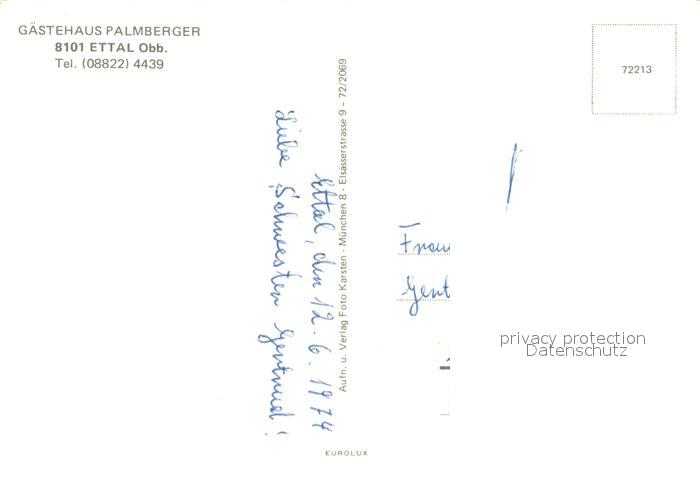 GÄSTEHAUS PALMBERGER
8101 ETTAL Obb.
Tel. (08822) 4439
72213
Ettal, den 12. 6. 1974
Liebe Schwester Gertrud!
Aufn. u. Verlag Foto Karsten - München 8 - Elsässerstrasse 9 - 72/2069
Frau
Gert
privacy protection
Datenschutz
EUROLUX